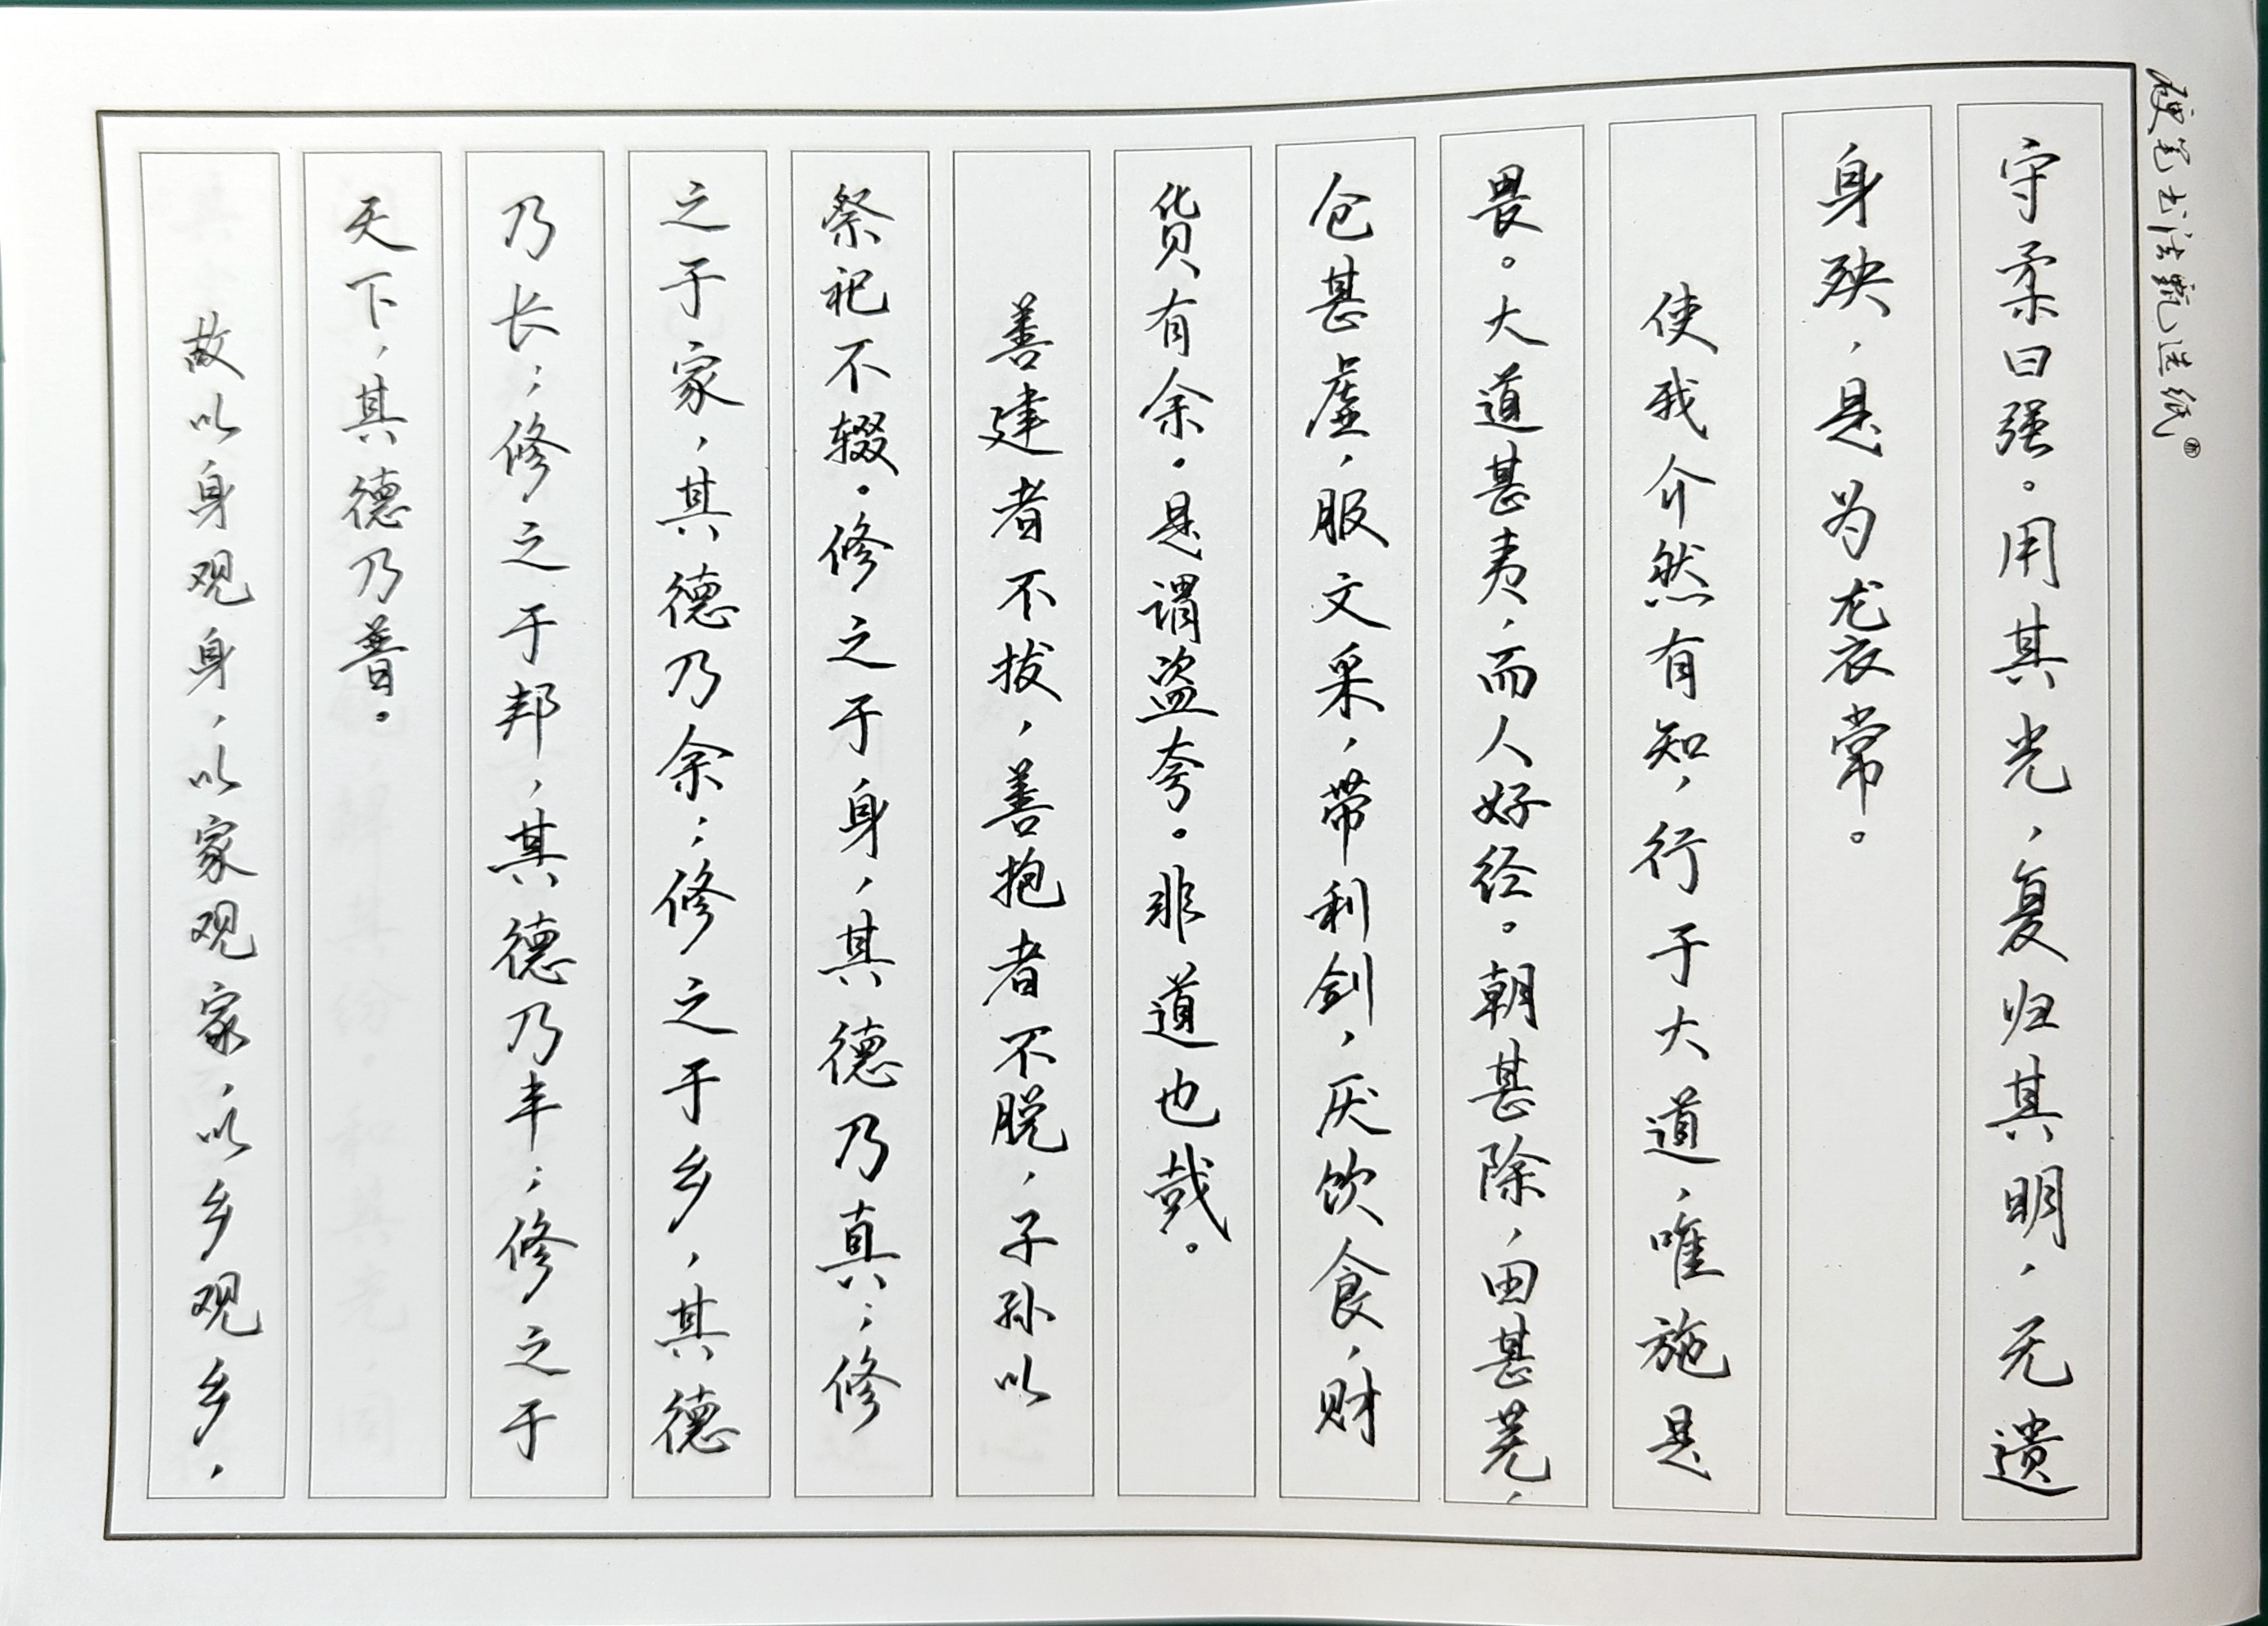 硬笔书法甄选纸
守柔曰强。用其光，复归其明，无遗
身殃，是为袭常。
使我介然有知，行于大道，唯施是
畏。大道甚夷，而人好径。朝甚除，田甚芜，
仓甚虚，服文采，带利剑，厌饮食，财
货有余。是谓盗夸。非道也哉。
善建者不拔，善抱者不脱，子孙以
祭祀不辍。修之于身，其德乃真；修
之于家，其德乃余；修之于乡，其德
乃长；修之于邦，其德乃丰；修之于
天下，其德乃普。
故以身观身，以家观家，以乡观乡，